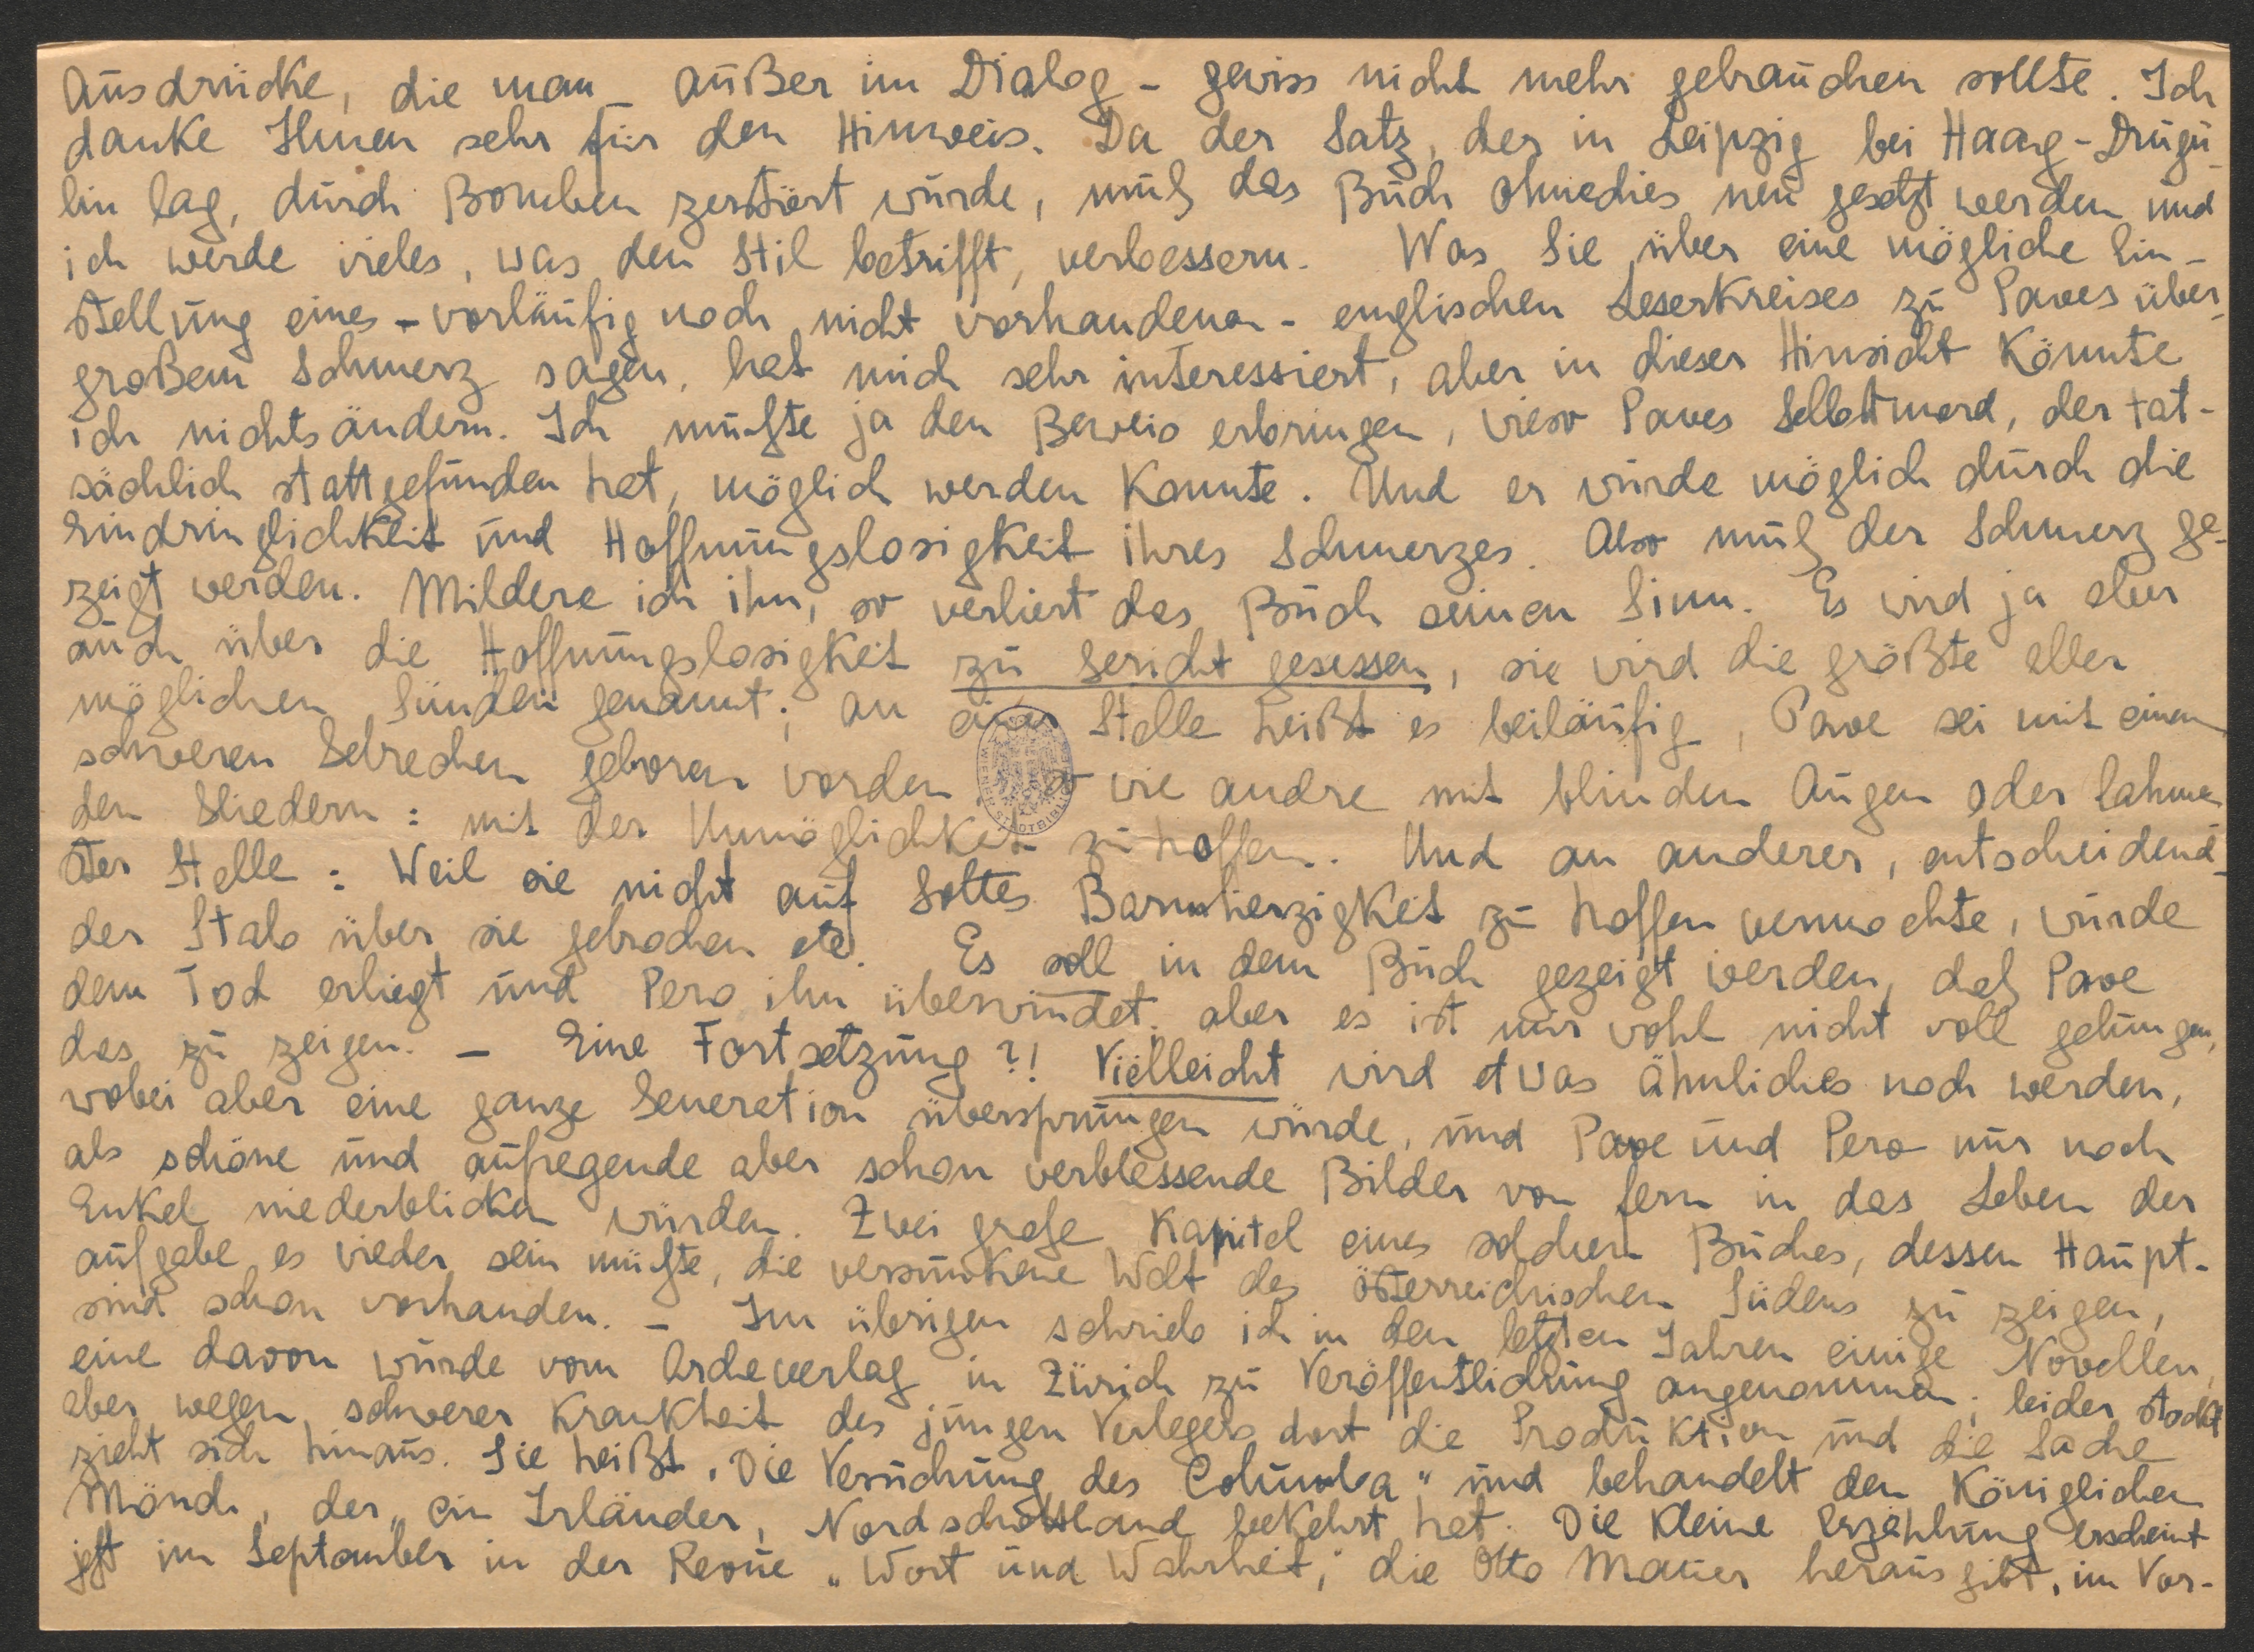 Ausdrücke, die man – außer im Dialog – gewiss nicht mehr gebrauchen sollte. Ich
danke Ihnen sehr für den Hinweis. Da der Satz, der in Leipzig bei Haag-Drugu-
lin lag, durch Bomben zerstört wurde, muß das Buch ohnedies neu gesetzt werden und
ich werde vieles, was den Stil betrifft, verbessern. Was Sie über eine mögliche Ein-
stellung eines – vorläufig noch nicht vorhandenen – englischen Leserkreises zu Paves über-
großem Schmerz sagen, hat mich sehr interessiert, aber in dieser Hinsicht könnte
ich nichts ändern. Ich mußte ja den Beweis erbringen, wieso Paves Selbstmord, der tat-
sächlich stattgefunden hat, möglich werden konnte. Und er wurde möglich durch die
Eindringlichkeit und Hoffnungslosigkeit ihres Schmerzes. Also muß der Schmerz ge-
zeigt werden. Mildere ich ihn, so verliert das Buch seinen Sinn. Es wird ja aber
auch über die Hoffnungslosigkeit zu Gericht gesessen, sie wird die größte aller
möglichen Sünden genannt; an einer Stelle heißt es beiläufig, Pave sei mit einem
schweren Gebrechen geboren worden, so wie andre mit blinden Augen oder lahmen-
den Gliedern: mit der Unmöglichkeit zu hoffen. Und an anderer, entscheidend-
ster Stelle: Weil sie nicht auf Gottes Barmherzigkeit zu hoffen vermochte, wurde
der Stab über sie gebrochen etc. Es soll in dem Buch gezeigt werden, daß Pave
dem Tod erliegt und Pero ihn überwindet, aber es ist mir wohl nicht voll gelungen,
das zu zeigen. – Eine Fortsetzung?! Vielleicht wird etwas ähnliches noch werden,
wobei aber eine ganze Generation übersprungen würde, und Pave und Pero nur noch
als schöne und aufregende aber schon verblassende Bilder von fern in das Leben der
Enkel niederblicken würden. Zwei große Kapitel eines solchen Buches, dessen Haupt-
aufgabe es wieder sein müßte, die versunkene Welt des österreichischen Südens zu zeigen,
sind schon vorhanden. – Im übrigen schrieb ich in den letzten Jahren einige Novellen,
eine davon wurde vom Archeverlag in Zürich zu Veröffentlichung angenommen; leider stockt
aber wegen schwerer Krankheit des jungen Verlegers dort die Produktion und die Sache
zieht sich hinaus. Sie heißt „Die Versuchung des Columba" und behandelt den königlichen
Mönch, der, ein Irländer, Nordschottland bekehrt hat. Die kleine Erzählung erscheint
jetzt im September in der Revue „Wort und Wahrheit", die Otto Mauer herausgibt, im Vor-